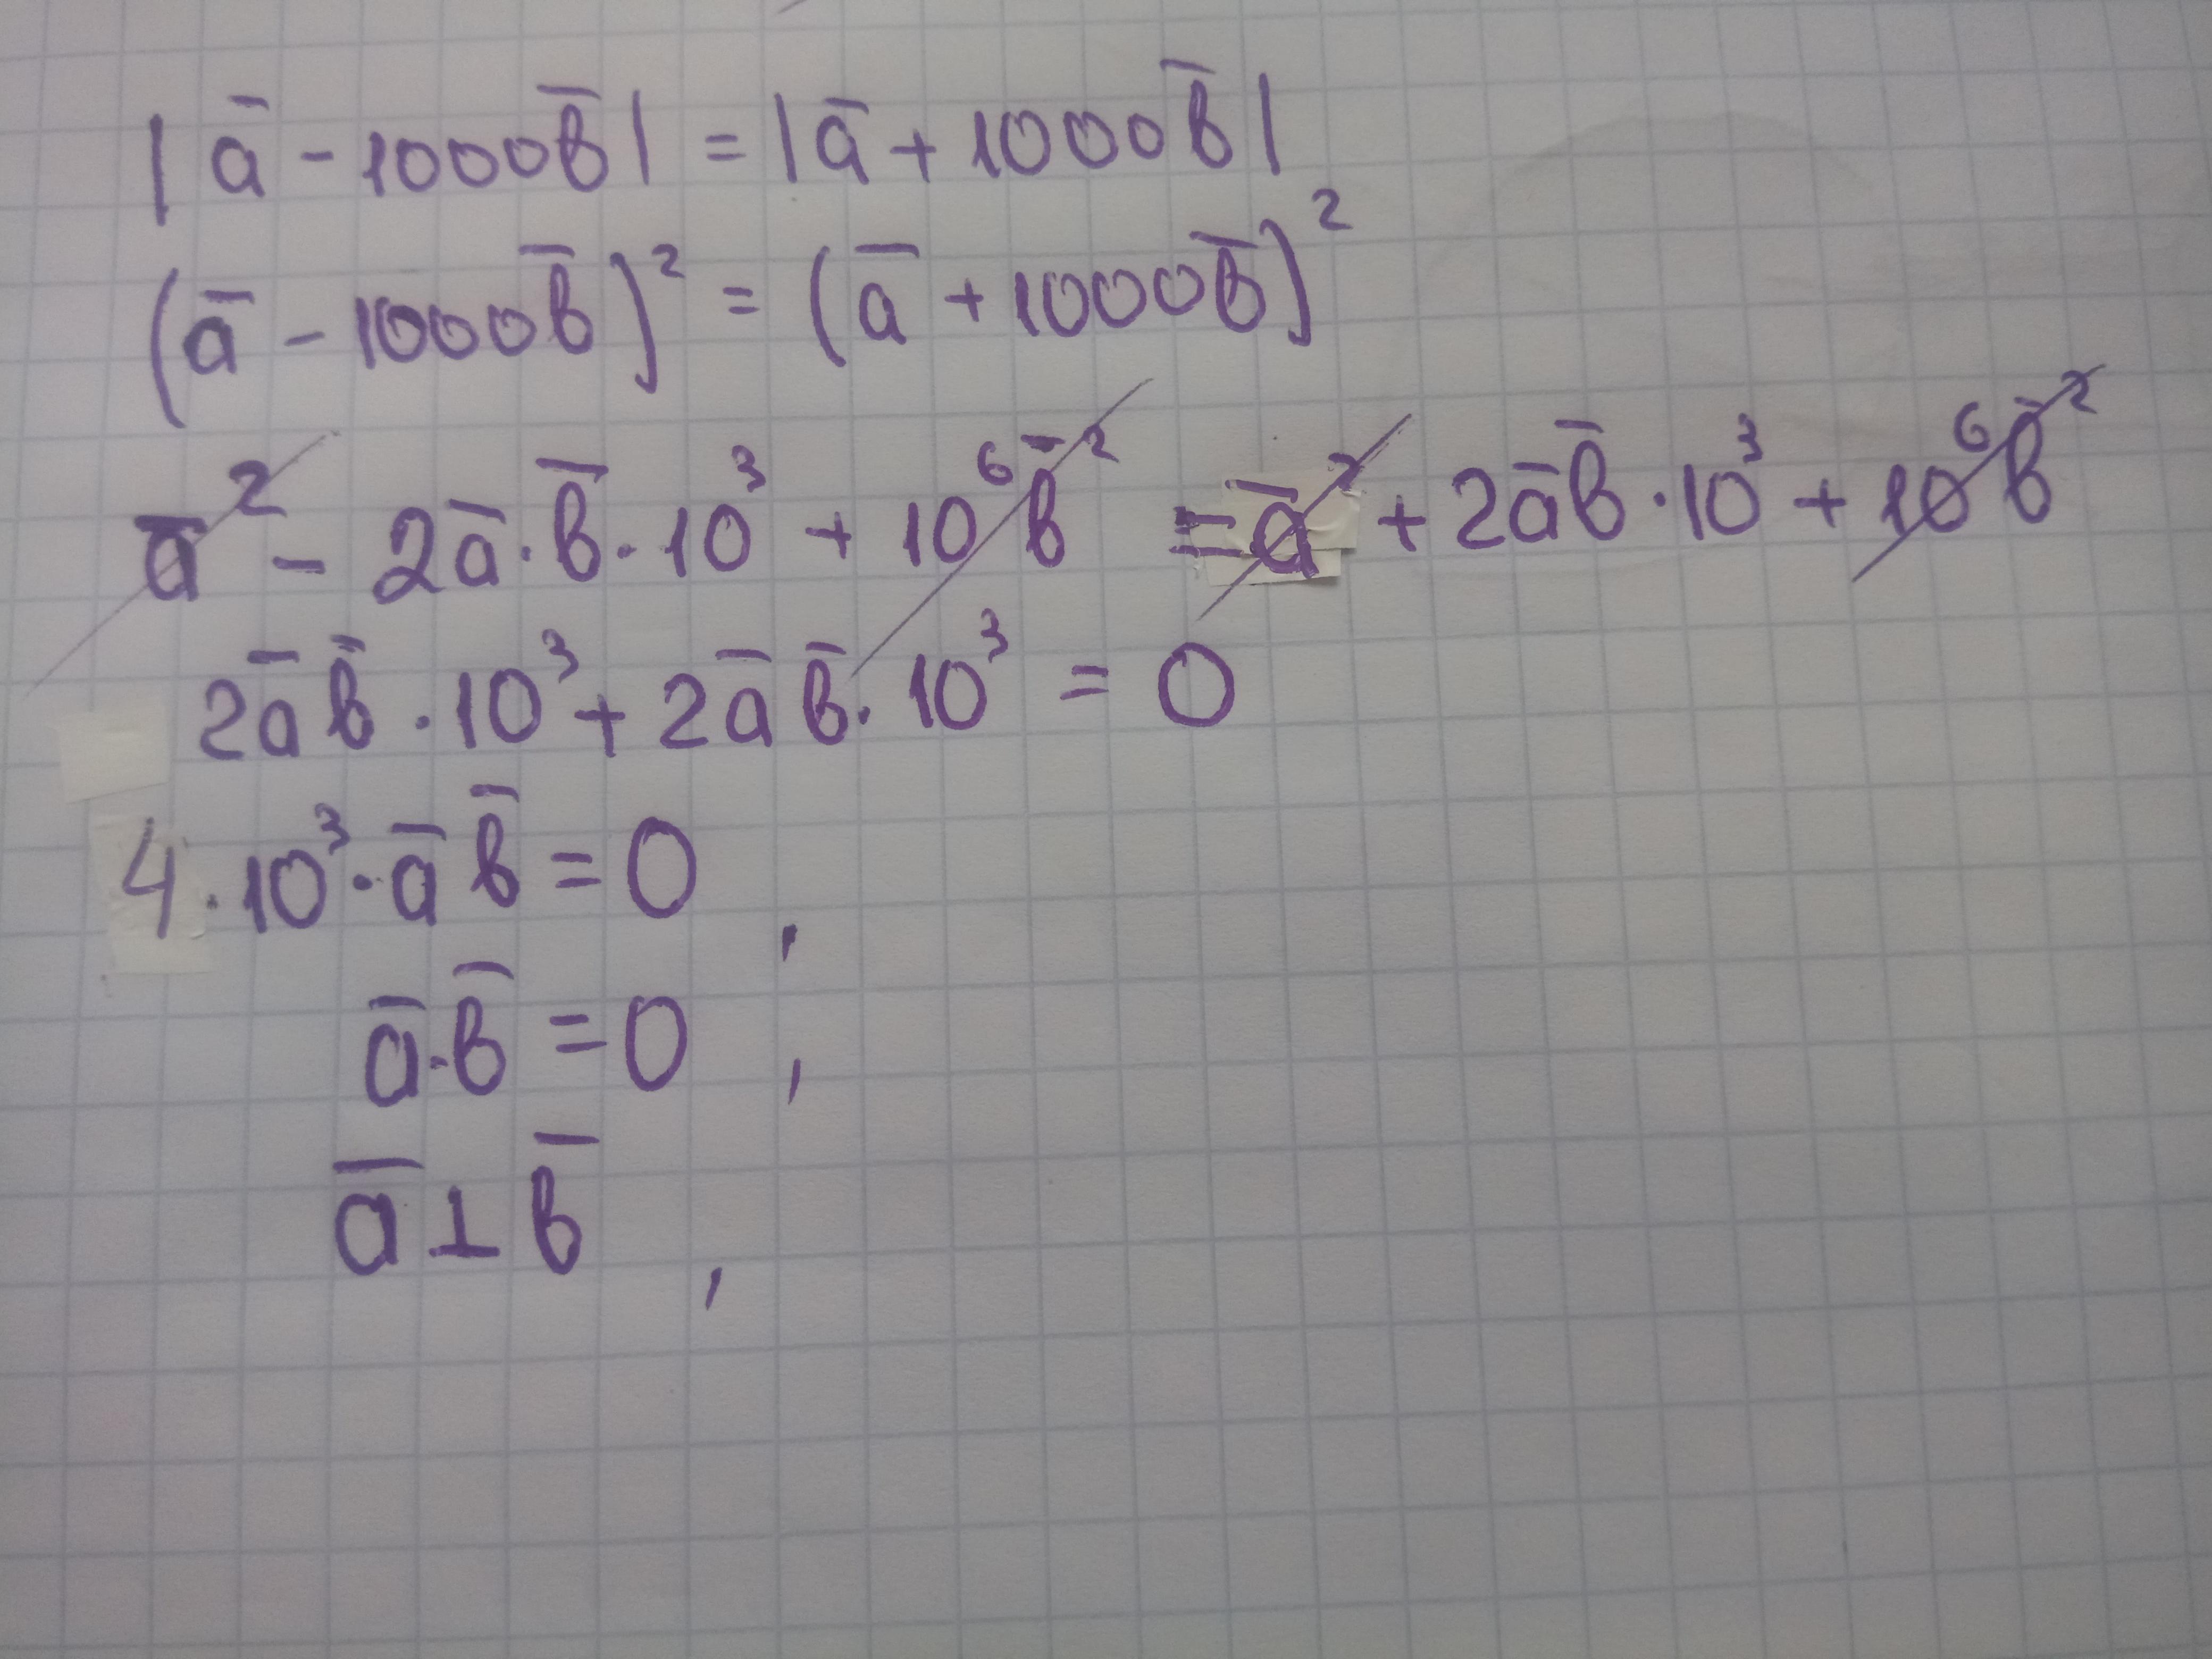 |a̅ - 1000b̅| = |a̅ + 1000b̅|
(a̅ - 1000b̅)² = (a̅ + 1000b̅)²
a̅² - 2a̅ · b̅ · 10³ + 10⁶b̅² = a̅² + 2a̅b̅ · 10³ + 10⁶b̅²
2a̅b̅ · 10³ + 2a̅b̅ · 10³ = 0
4 · 10³ · a̅b̅ = 0,
a̅ · b̅ = 0,
a̅ ⊥ b̅,